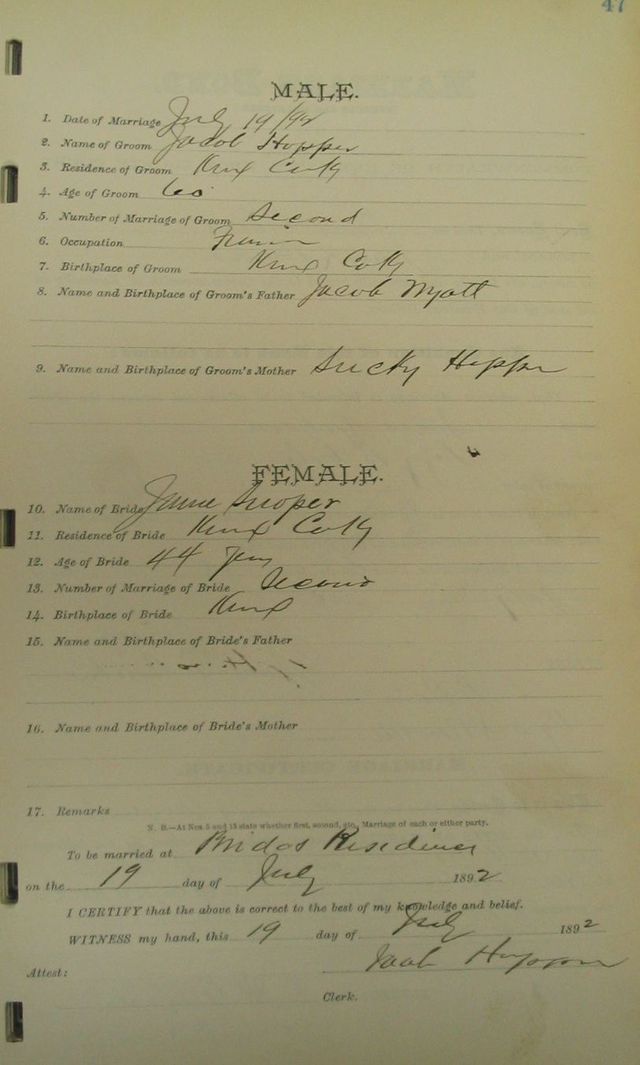 47
MALE.
1. Date of Marriage July 19/92
2. Name of Groom Jacob Hopper
3. Residence of Groom Knox Co Ky
4. Age of Groom 60
5. Number of Marriage of Groom Second
6. Occupation
7. Birthplace of Groom Knox Co Ky
8. Name and Birthplace of Groom's Father Jacob Wyatt
9. Name and Birthplace of Groom's Mother Sucky Hopper
FEMALE.
10. Name of Bride
11. Residence of Bride Knox Co Ky
12. Age of Bride 44 yrs
13. Number of Marriage of Bride Second
14. Birthplace of Bride Knox
15. Name and Birthplace of Bride's Father
16. Name and Birthplace of Bride's Mother
17. Remarks
N. B.—At Nos 5 and 13 state whether first, second, etc., Marriage of each or either party.
To be married at Brides Residence
on the 19 day of July 1892
I CERTIFY that the above is correct to the best of my knowledge and belief.
WITNESS my hand, this 19 day of July 1892
Jacob Hopper
Attest:
Clerk.